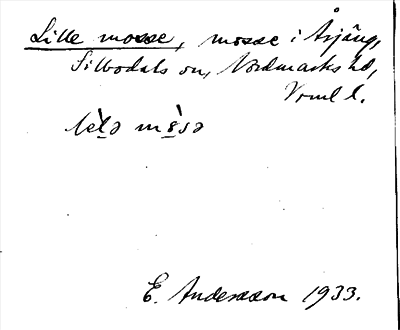 Lille mosse, mosse i Årjäng,
Silbodals sn, Nordmarks hd,
Vrml l.
lèlə mòsə
E. Andersson 1933.